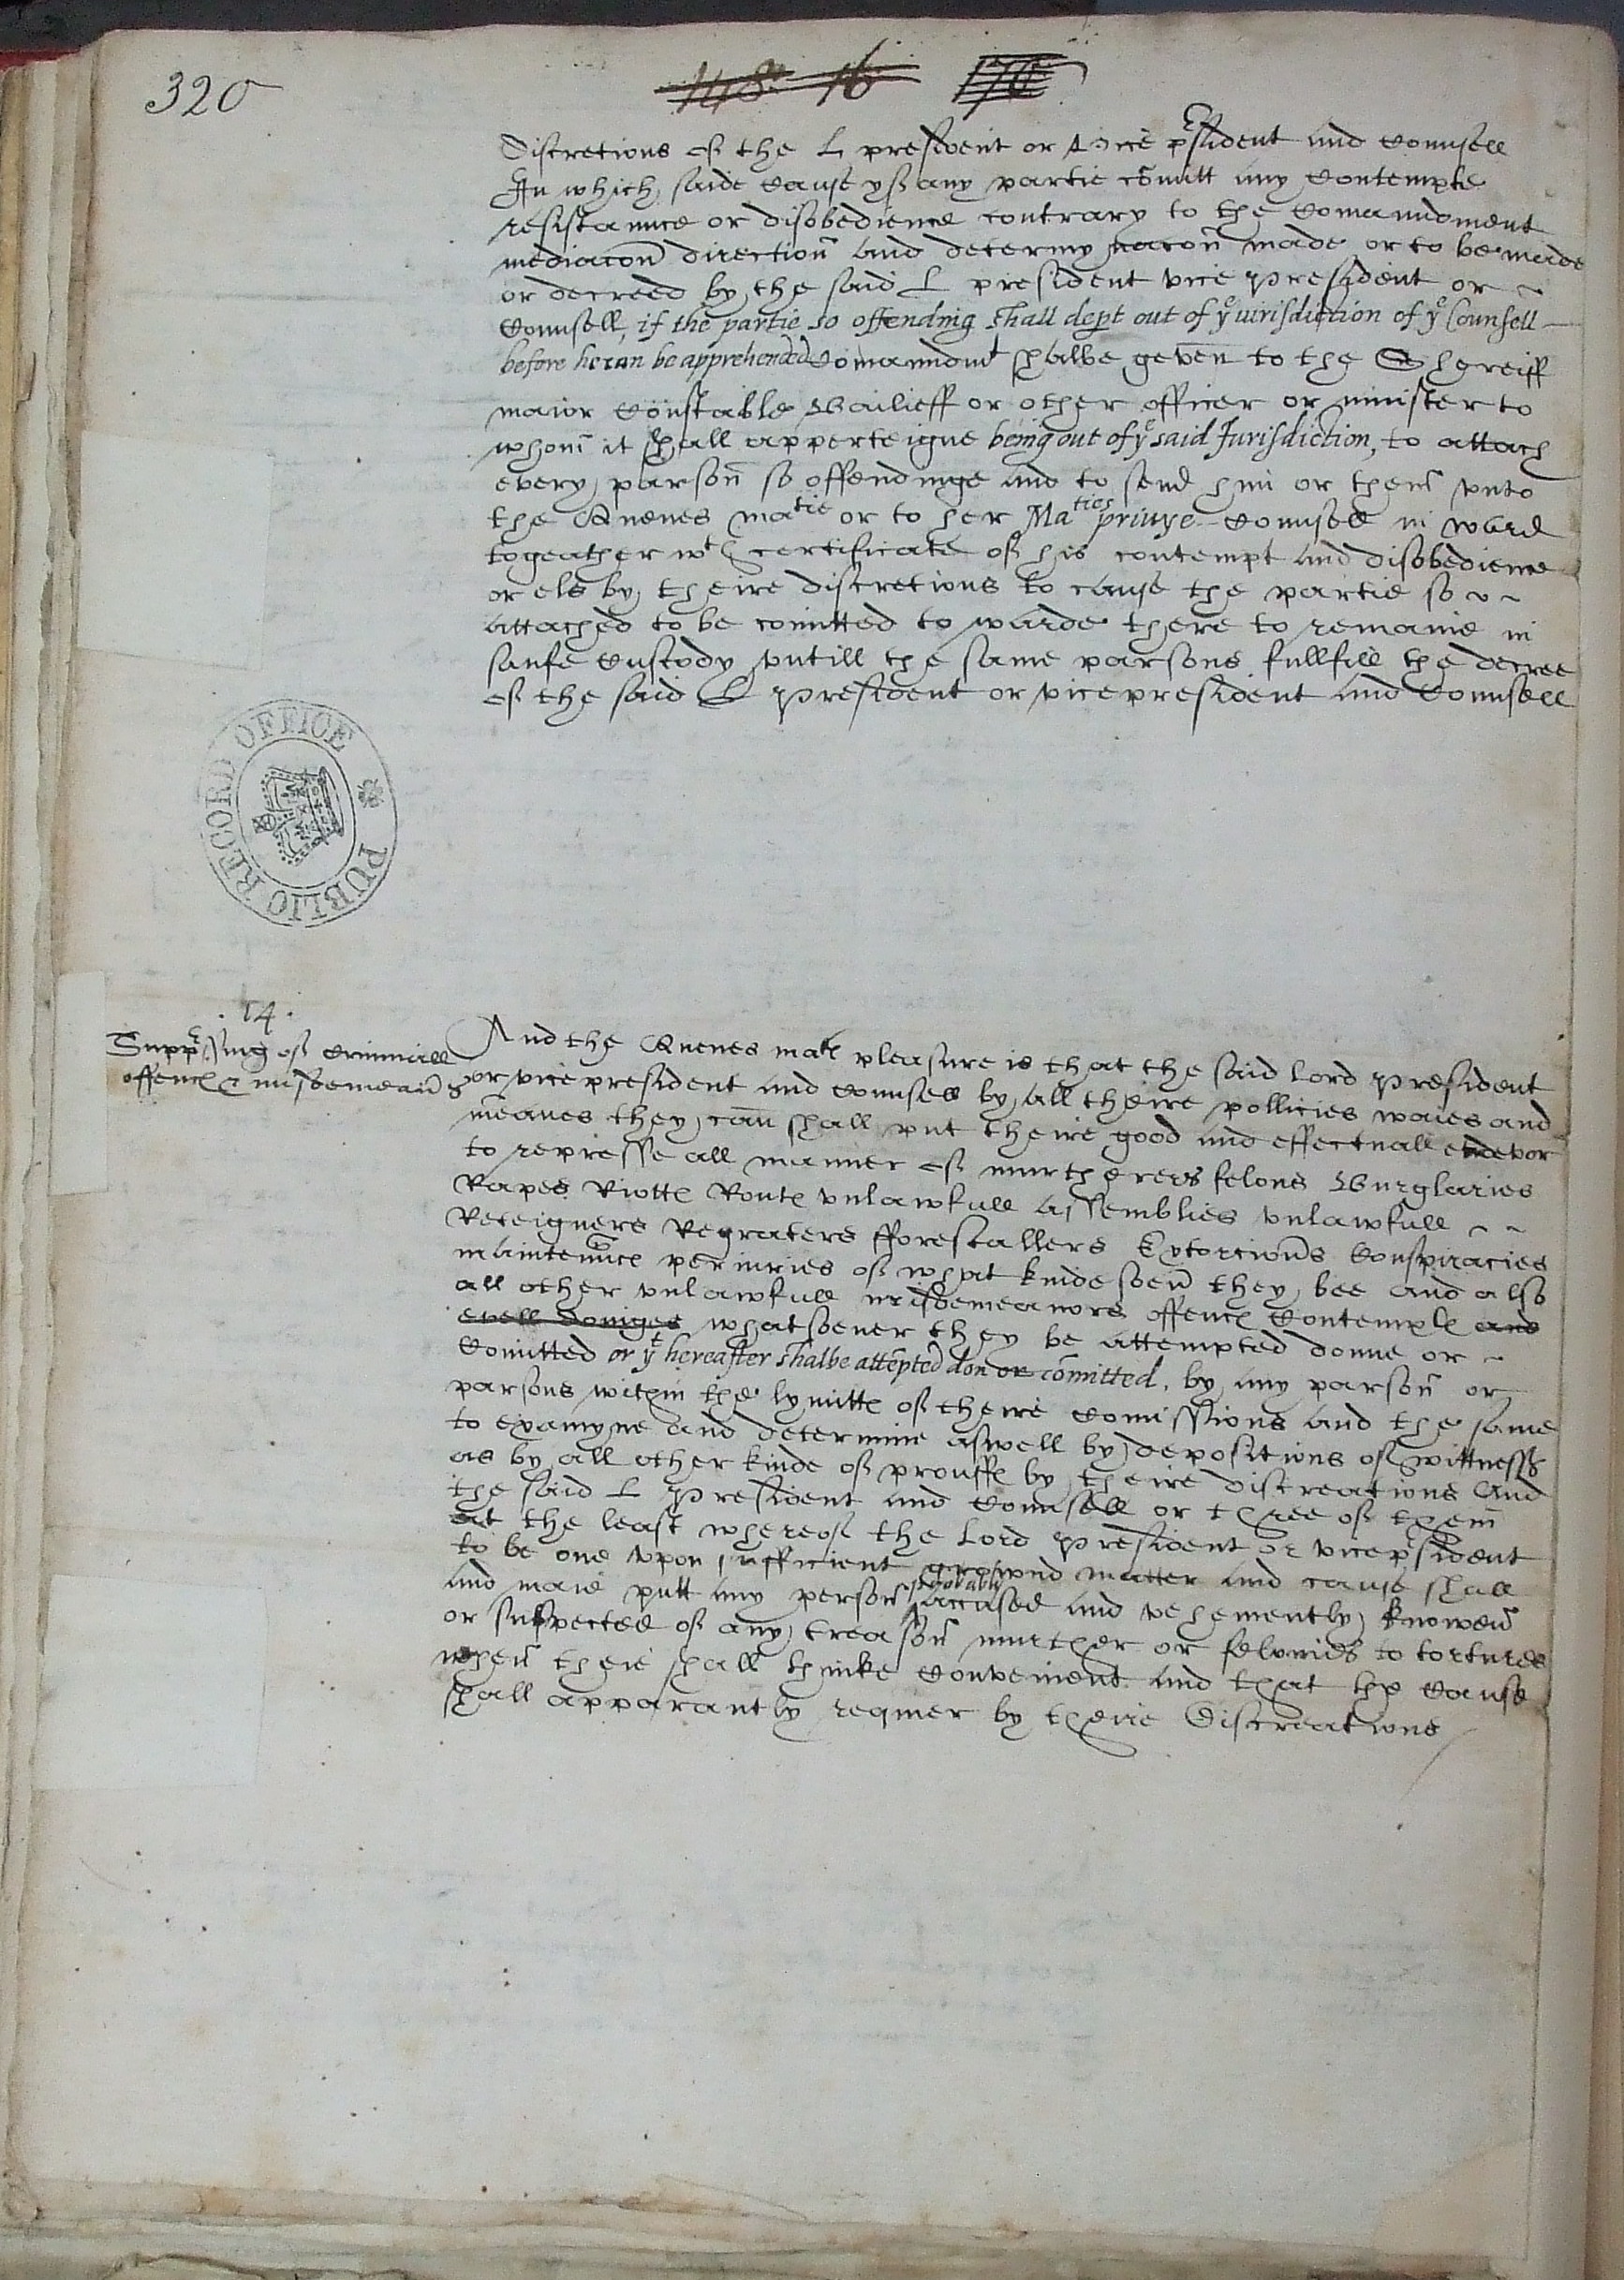 320
148 16 170
discretions of the L president or vice president and Counsell
In which saide cause yf any partie comitt any Contempte
resistaunce or disobedience contrary to the Comaundment
mediacon direction and determynacon made or to be made
or decreed by the said L president vice president or
Counsell, if the partie so offending shall dept out of ye iurisdiction of ye Counsell
before he can be apprehended Comaundmt shalbe geven to the Shereiff
maior Constable Bailieff or other officer or minister to
whom it shall apperteigne being out of ye said Jurisdiction, to attach
every parson so offendinge and to send him or them vnto
the Quenes matie or to her Maties privye Counsell in ward
togeather wth certificate of his contempt and disobedience
or els by theire discretions to cause the partie so
attached to be comitted to warde there to remaine in
saufe Custody vntill the same parsons fullfill the decree
of the said L president or vicepresident and Counsell
PUBLIC RECORD OFFICE
.14.
Suppressing of Criminall
offences & misdemeanrs
And the Quenes mates pleasure is that the said Lord president
or vice president and Counsell by all theire pollicies waies and
meanes they can shall put theire good and effectuall endevor
to represse all manner of murtherers felons Burglaries
Rapes Riottes Routes vnlawfull assemblies vnlawfull
Reteigners Regraters fforestallers Extorcions Conspiracies
maintenances periuries of what kinde soeuer they bee and also
all other vnlawfull misdemeanors offences Contemptes and
evell doinges whatsoeuer they be attempted donne or
Comitted or yt hereafter shalbe attempted don or comitted, by any parson or
parsons within the lymittes of theire Comissions and the same
to examyne and determine aswell by depositions of wittnesses
as by all other kinde of prouffes by theire discreations And
the said L president and Counsell or three of them
at the least whereof the Lord president or vicepresident
to be one vpon sufficient grownd matter and cause shall
and maie putt any person probably accused and vehemently knowen
or suspected of any treason murther or felonies to tortures
when theie shall thinke Convenient and that the Cause
shall apparantly requier by theire Discreations